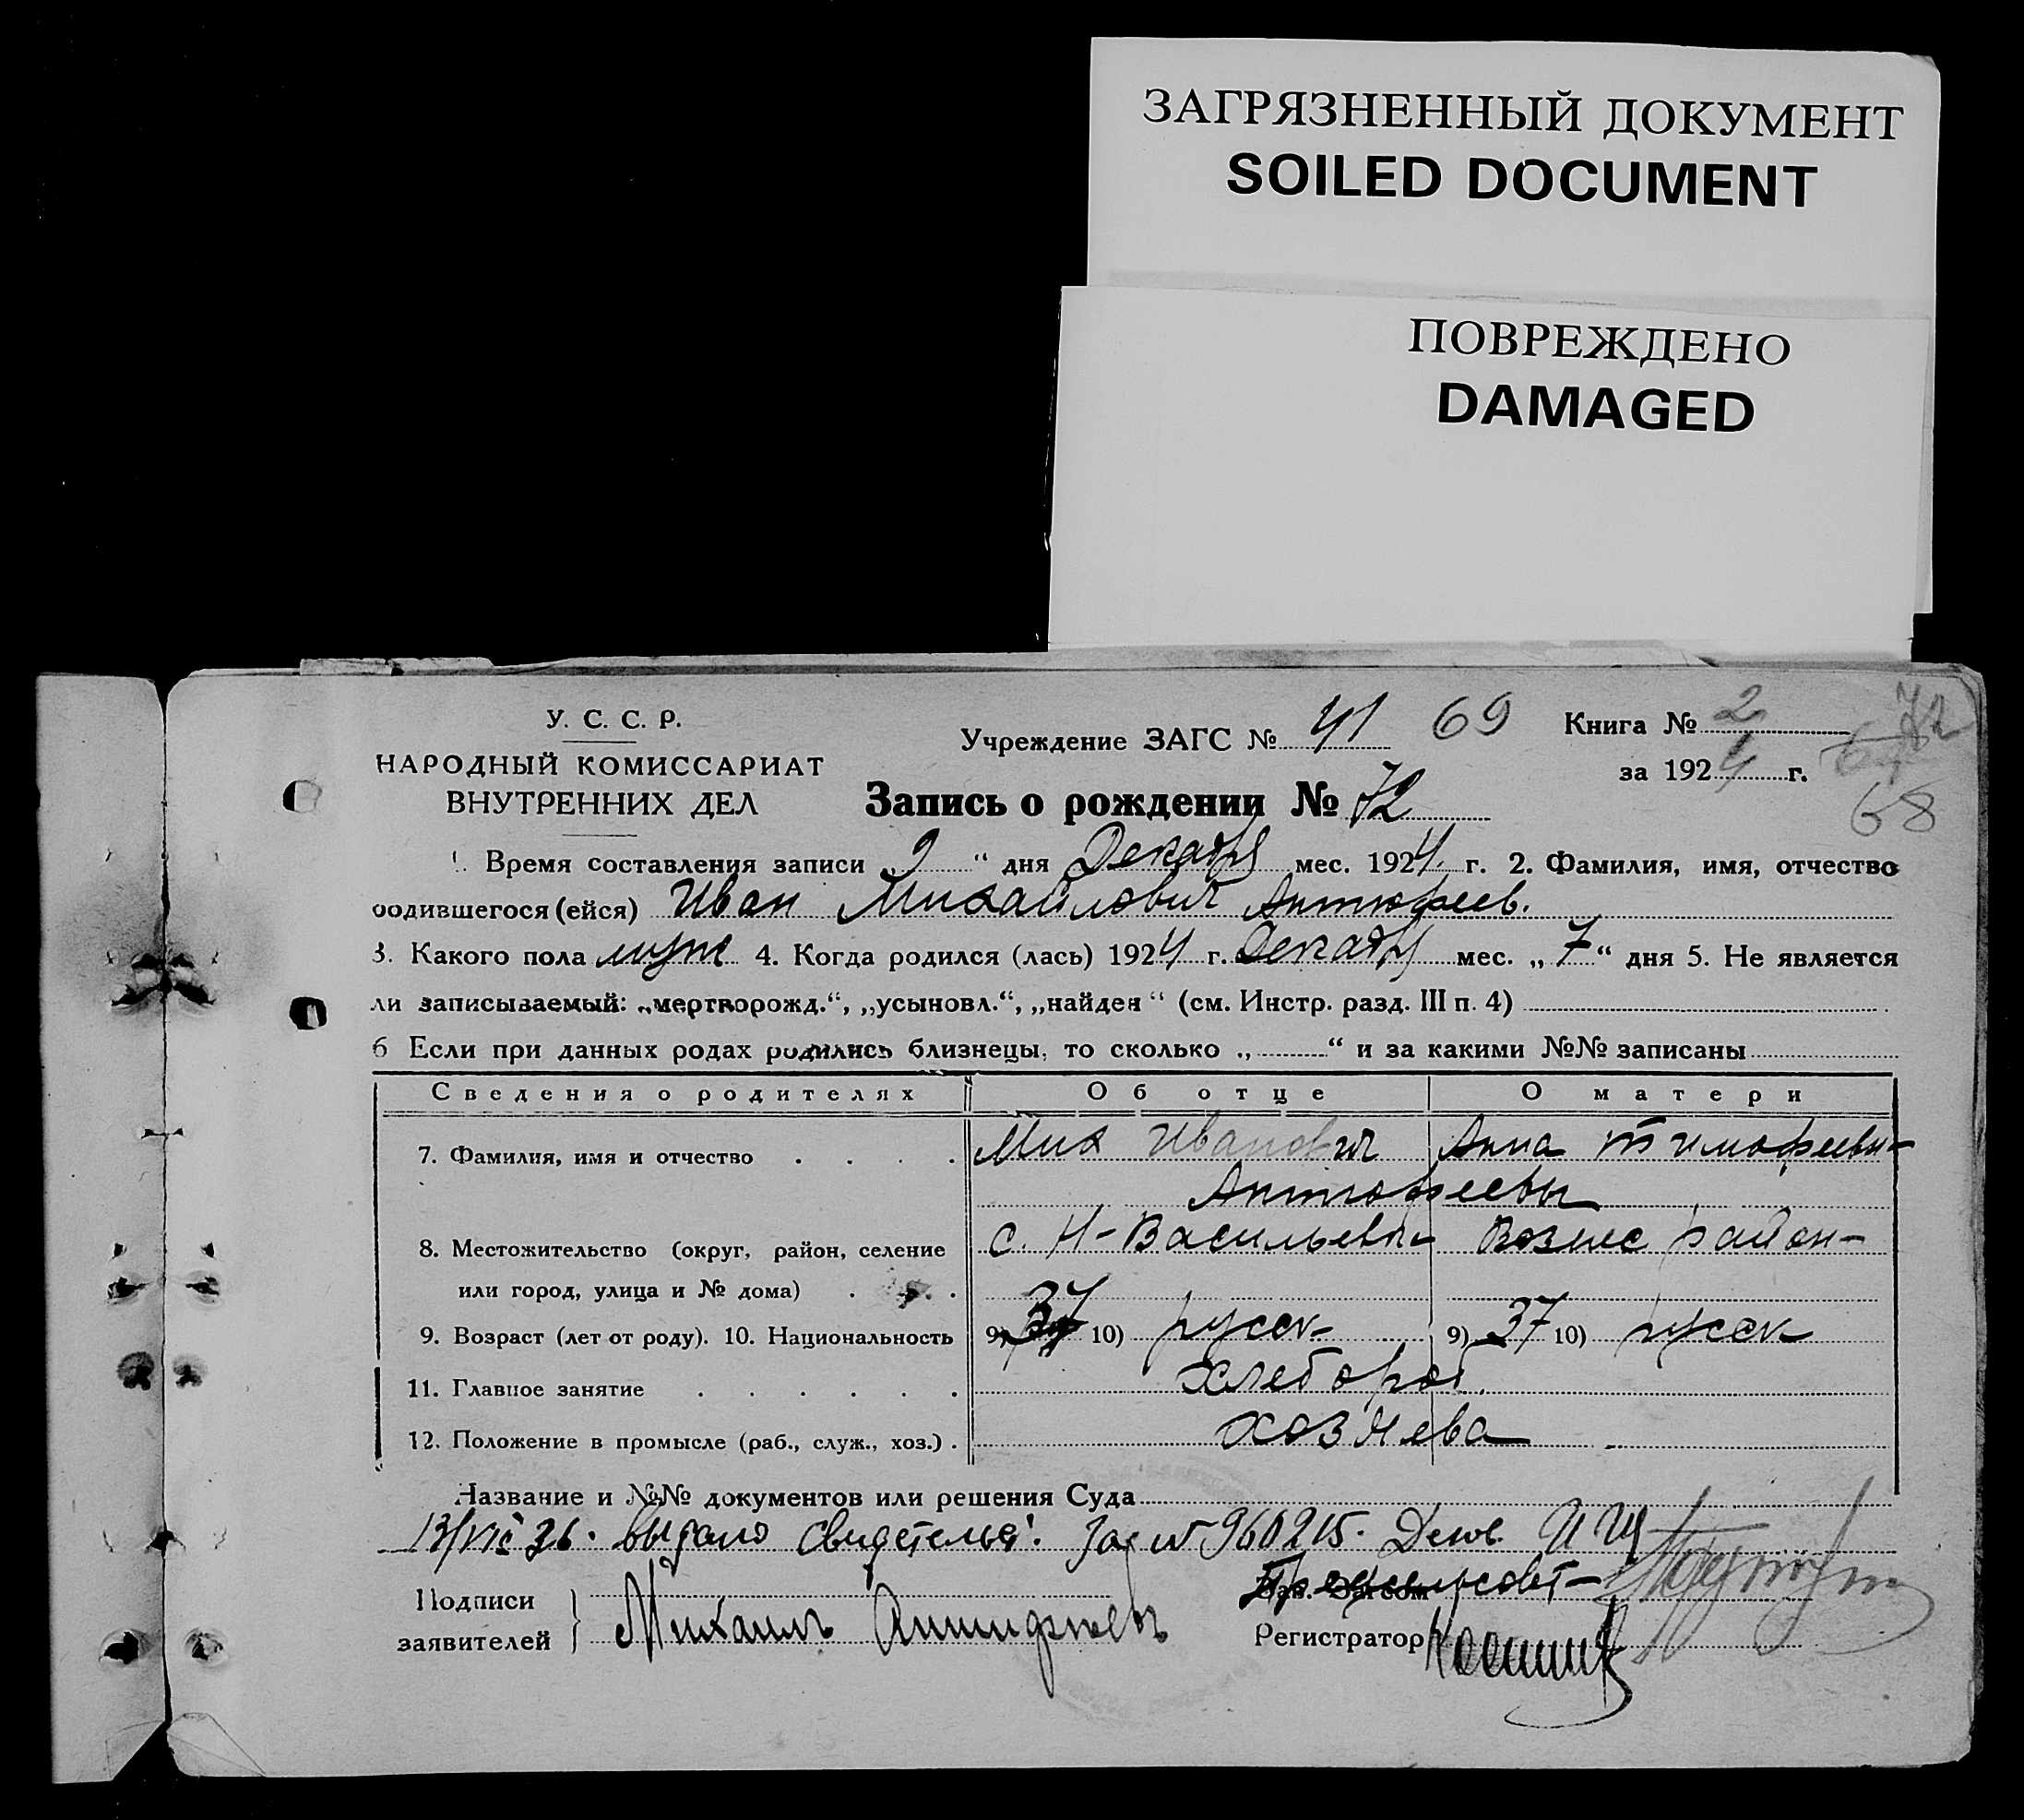 ЗАГРЯЗНЕННЫЙ ДОКУМЕНТ
SOILED DOCUMENT
ПОВРЕЖДЕНО
DAMAGED
У. С. С. Р.
НАРОДНЫЙ КОМИССАРИАТ
ВНУТРЕННИХ ДЕЛ
Учреждение ЗАГС № 41 69
Книга № 2 72
за 1924 г.
68
Запись о рождении № 72
1. Время составления записи „9“ дня Декабр мес. 1924 г. 2. Фамилия, имя, отчество
родившегося (ейся) Иван Михайлович Антюфеев.
3. Какого пола муж 4. Когда родился (лась) 1924 г. Декабр мес. „7“ дня 5. Не является
ли записываемый: „мертворожд.“, „усыновл.“, „найден“ (см. Инстр. разд. III п. 4)
6 Если при данных родах родились близнецы, то сколько „ “ и за какими №№ записаны
Сведения о родителях Об отце О матери
7. Фамилия, имя и отчество Мих Иванович Анна Тимофеевн
Антюфеевы
8. Местожительство (округ, район, селение с. Н-Васильевк Вознес район
или город, улица и № дома)
9. Возраст (лет от роду). 10. Национальность 9) 37 10) русск 9) 37 10) русск
11. Главное занятие хлебороб.
12. Положение в промысле (раб., служ., хоз.) хозяева
Название и №№ документов или решения Суда
выдано Свидетельс. За № 960215.
Подписи
заявителей
Михаилъ Антифеевъ
Регистратор